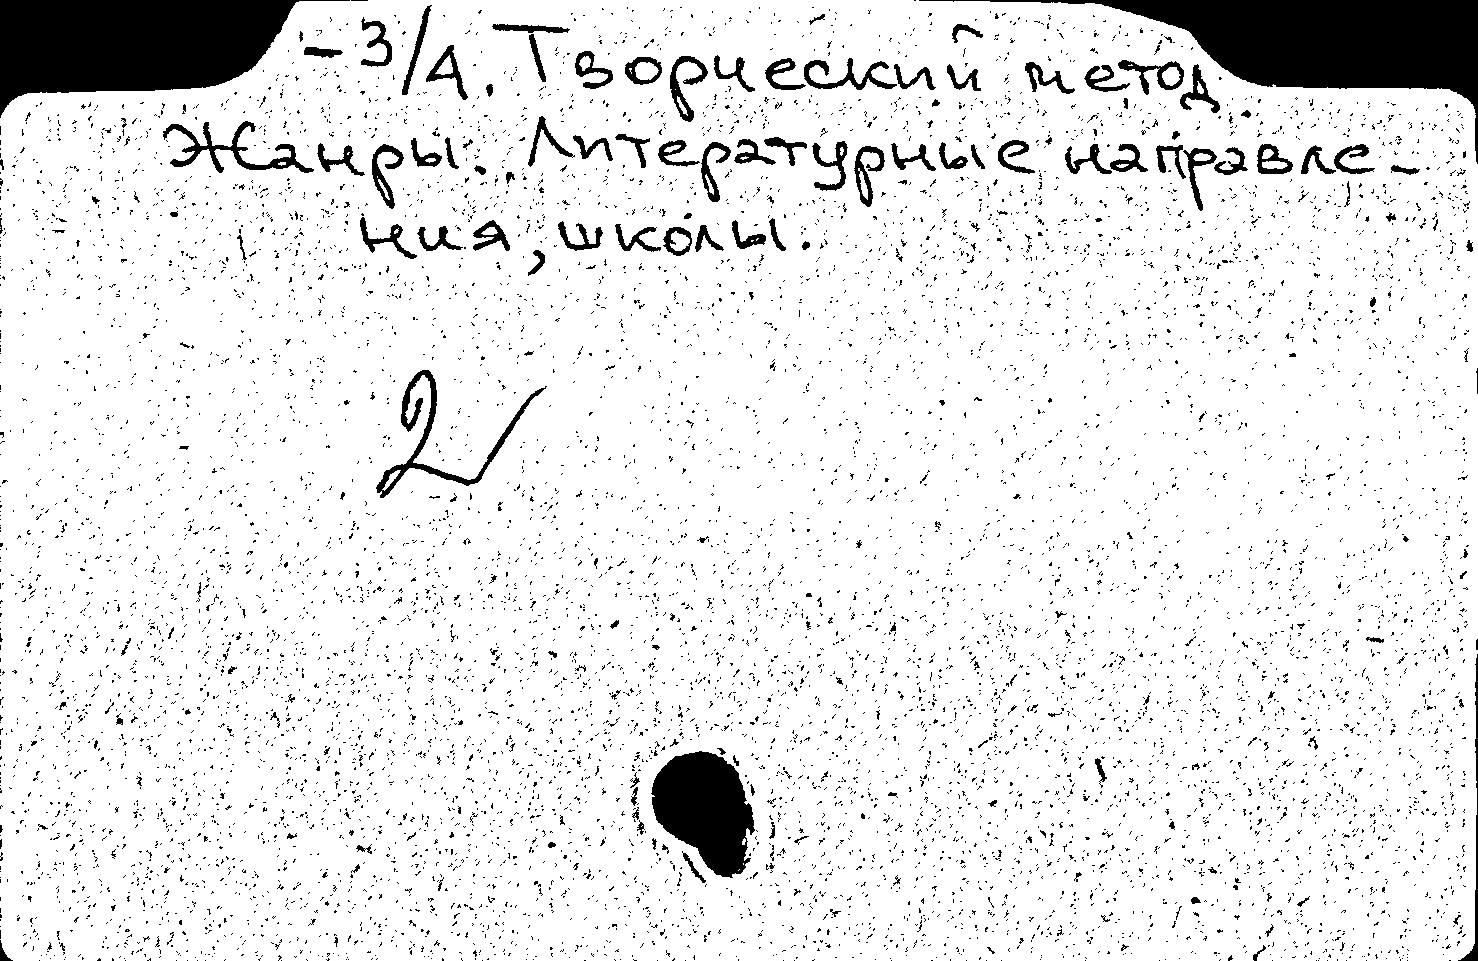 -3/4. Творческий метод.
Жанры. Литературные направле-
ния, школы.
2